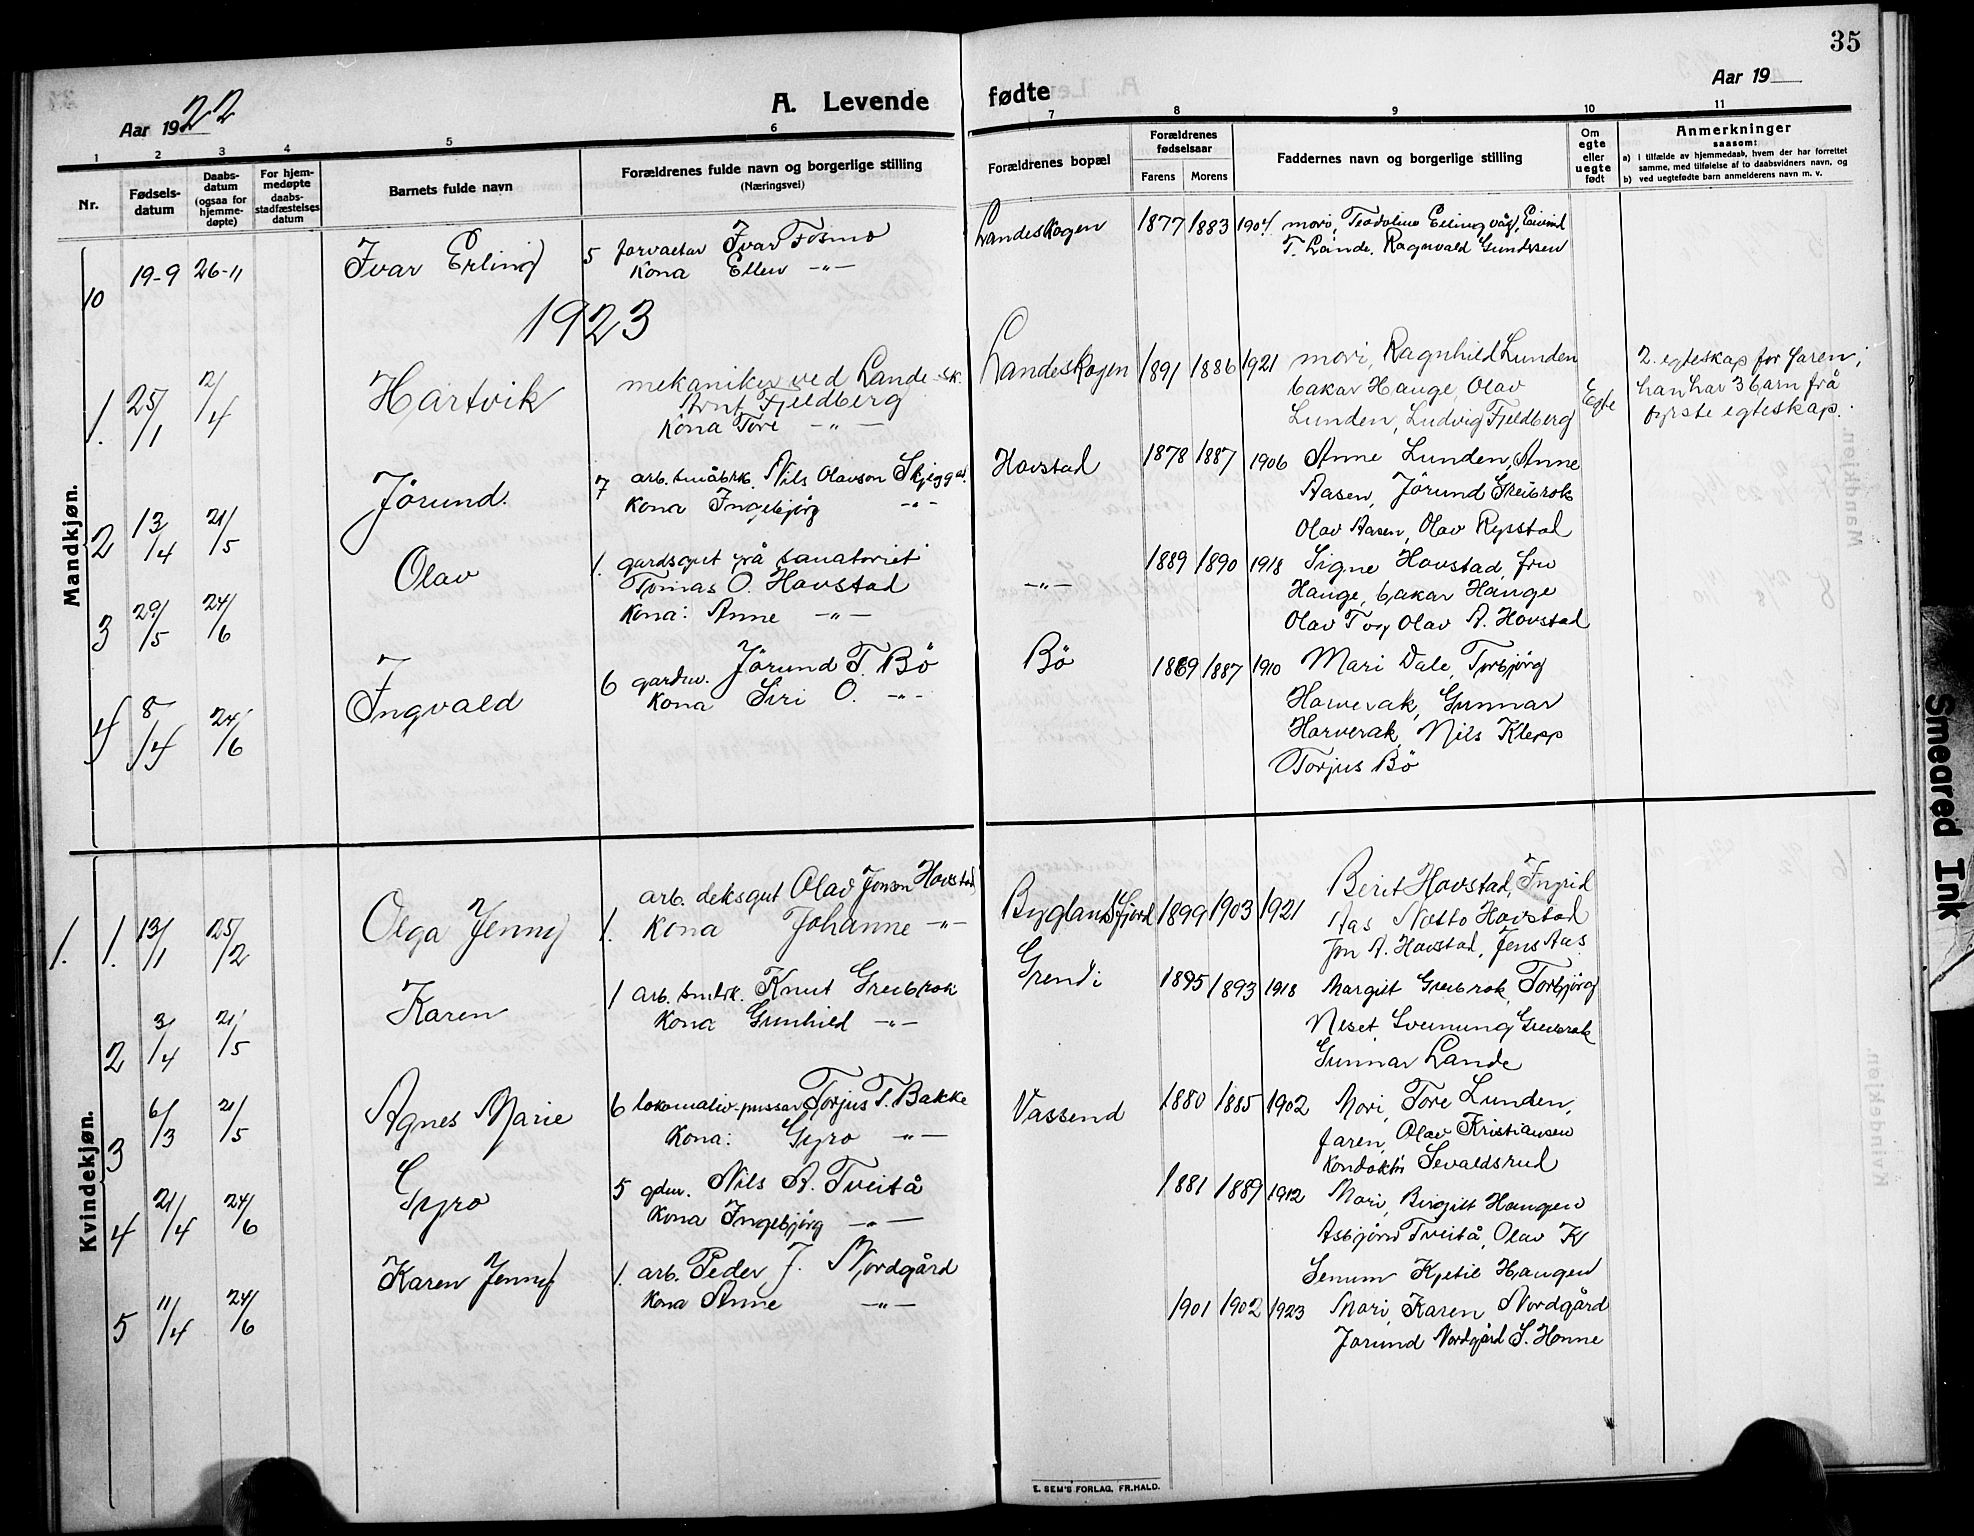 35
Aar 1922
A. Levende fødte
Aar 19
1 2 3 4 5 6 7 8 9 10 11
Nr.
Fødsels-
datum
Daabs-
datum
(ogsaa for
hjemme-
døpte)
For hjem-
medøpte
daabs-
stadfæstelses
datum
Barnets fulde navn
Forældrenes fulde navn og borgerlige stilling
(Næringsvei)
Forældrenes bopæl
Forældrenes
fødselsaar
Farens Morens
Faddernes navn og borgerlige stilling
Om
egte
eller
uegte
født
Anmerkninger
saasom:
a) i tilfælde av hjemmedaab, hvem der har forrettet
samme, med tilføielse af to daabsvidners navn, og
b) ved uegtefødte barn anmelderens navn m. v.
Mandkjøn.
10 19-9 26-11 Ivar Erling 5 forvaltar Ivar Fosmo
Kona Ellen -"-
Landeskogen 1877 1883 1904 mori, Teodoline Eivind
T. Lande, Ragnvald Gundersen
1923
1. 25/1 2/4 Hartvik mekaniker ved Lande-sk.
Arnt Fjeldberg
Kona Tore -"-
Landeskogen 1891 1886 1921 mori, Ragnhild Lunden
bakar Hauge, Olav
Lunden, Ludvig Fjeldberg
Egte
2. egteskap for faren;
han har 3 barn frå
fyrste egteskap.
2 13/4 21/5 Jörund. 7 arb. småbrk. Nils Olavson Skjeggest.
Kona Ingebjörg -"-
Hovstad 1878 1887 1906 Anne Lunden, Anne
Aasen, Jörund Greibrok
Olav Aasen, Olav Rysstad
3 29/5 24/6 Olav 1. gardsgut frå sanatoriet
Tomas O. Hovstad
Kona: Anne -"-
-"- 1889 1890 1918 Signe Hovstad, fru
Hauge, bakar Hauge
Olav Olav A. Hovstad
4 8/4 24/6 Ingvald 6 gardm. Jörund T. Bö
Kona Siri O. -"-
Bö 1869 1887 1910 Mari Dale, Torbjörg
Horverak, Gunnar
Horverak, Nils Klepp
Torjus Bö
Kvindekjøn.
1. 1. 13/1 25/2 Olga Jenny 1. arb. deksgut Olav Jonson Hovstad
Kona Johanne -"-
Byglandsfjord 1899 1903 1921 Berit Hovstad, Ingrid
Aas Notto Hovstad
Jon A. Hovstad, Jens Aas
2 3/4 21/5 Karen 1 arb. smbrk. Knut Greibrok
Kona Gunhild -"-
Grendi 1895 1893 1918 Margit Greibrok, Torbjörg
Neset, Sveinung Greibrok
Gunnar Lande
3 6/3 21/5 Agnes Marie 6 lokomotiv-pussar Torjus T. Bakke
Kona: Gyro -"-
Vassend 1880 1885 1902 Mori, Tore Lunden,
faren, Olav Kristiansen
Konduktör Sevaldsrud
4 21/4 24/6 Gyro 5 gdm. Nils A. Tveitå
Kona Ingebjörg -"-
1881 1889 1912 Mori, Birgitt Haugen
Asbjörn Tveitå, Olav K
Senum Kjetil Haugen
5 11/4 24/6 Karen Jenny 1. arb. Peder J. Nordgård
Kona Anne -"-
1901 1902 1923 Mori, Karen Nordgård
Jorund Nordgård S. Honne
E. SEM'S FORLAG, FR.HALD.
Smeared Ink